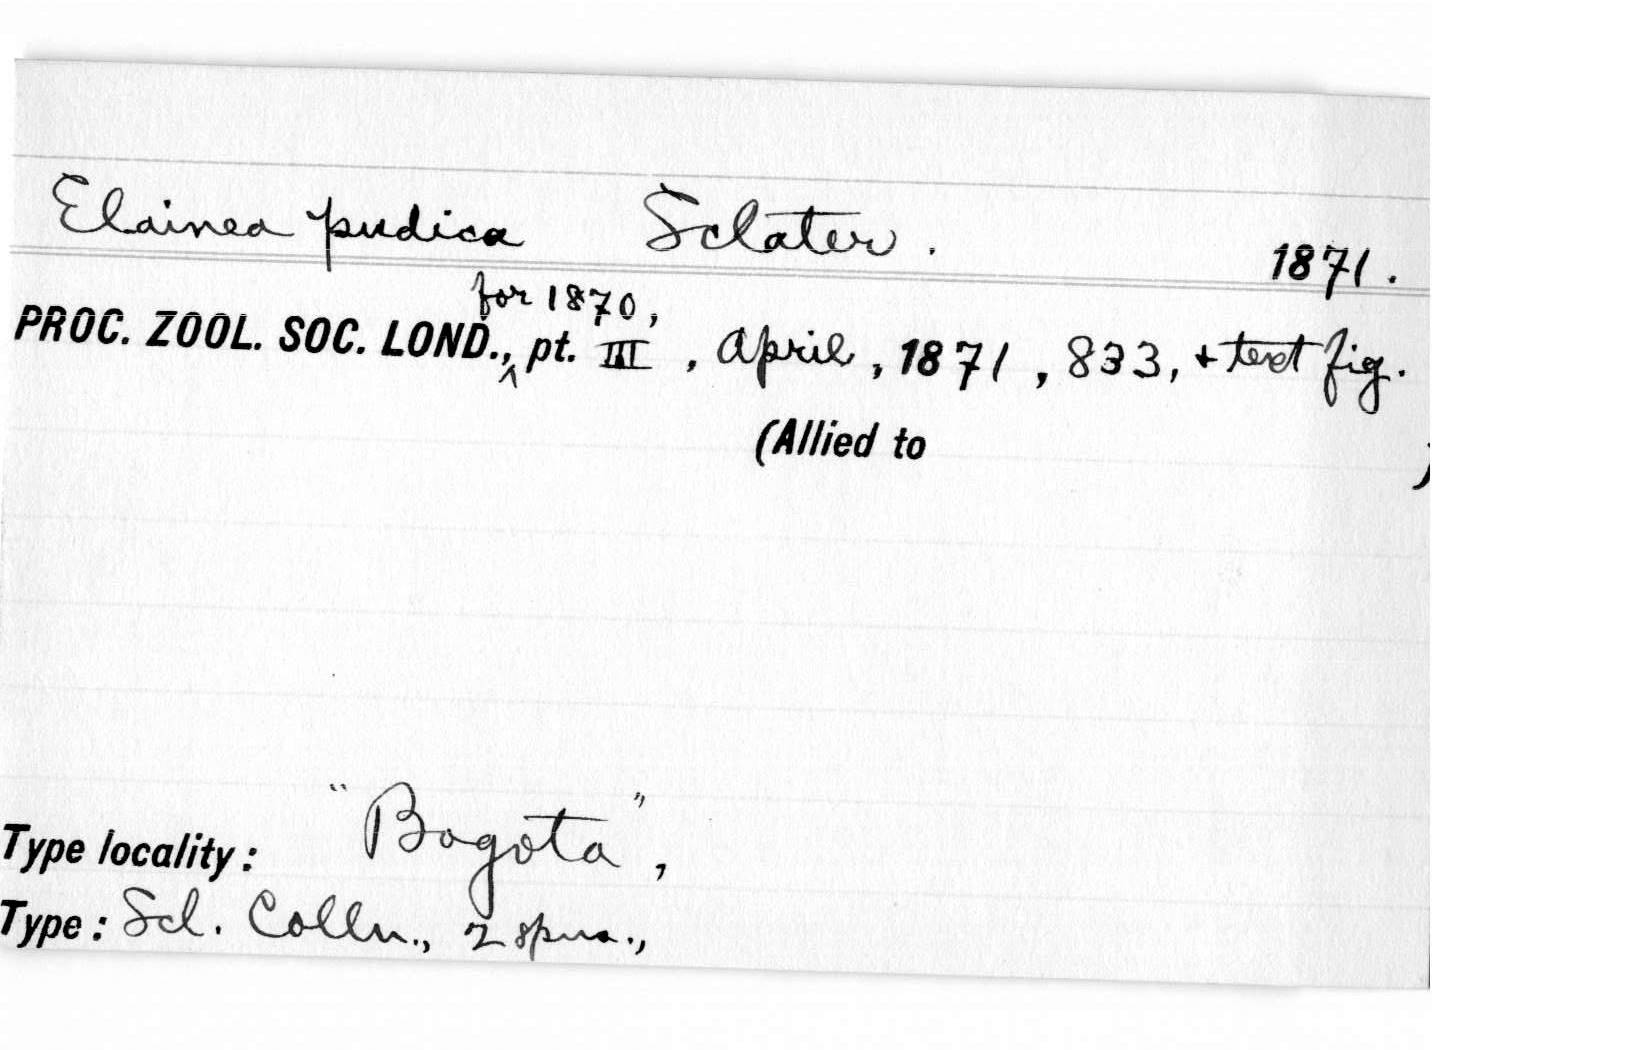 Elainea pudica Sclater. 1871.
for 1870,
PROC. ZOOL. SOC. LOND.,^ pt. III, April, 1871, 833, + text fig.
(Allied to )
Type locality: "Bogota",
Type: Scl. Colln., 2 spns.,